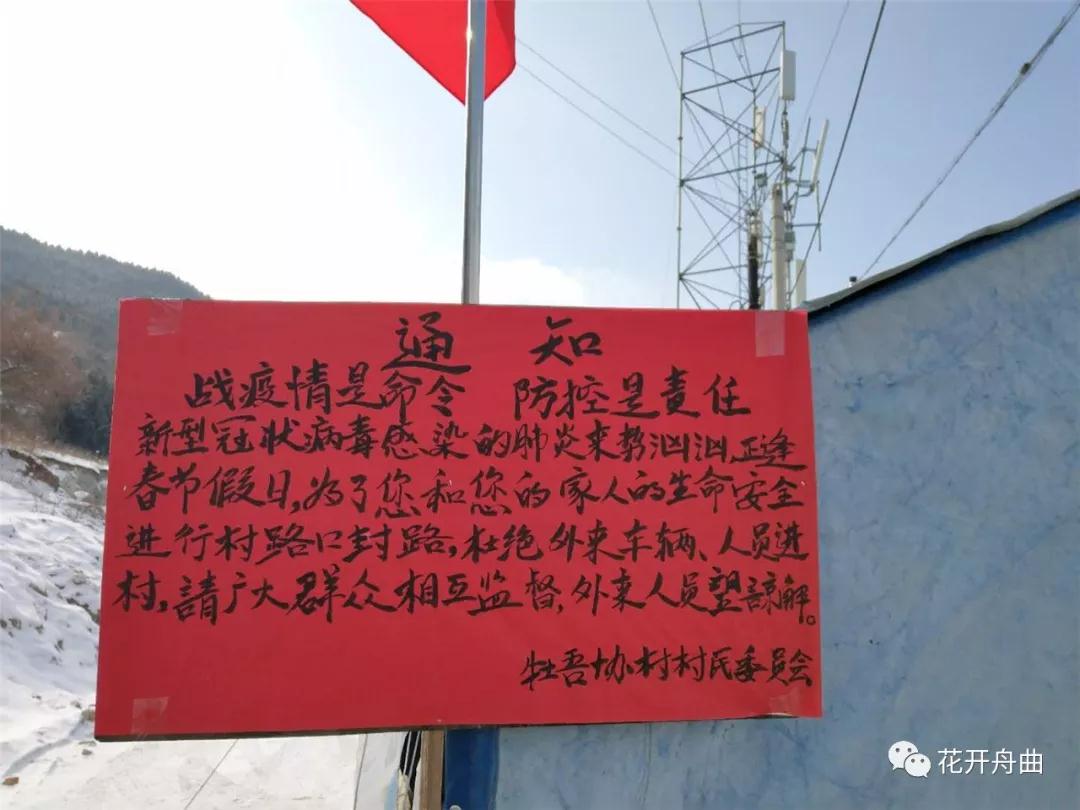 通 知
战疫情是命令 防控是责任
新型冠状病毒感染的肺炎来势汹汹,正逢
春节假日,为了您和您的家人的生命安全
进行村路口封路,杜绝外来车辆、人员进
村,請广大群众相互监督,外来人员望諒解。
牡吾协村村民委员会
花开舟曲